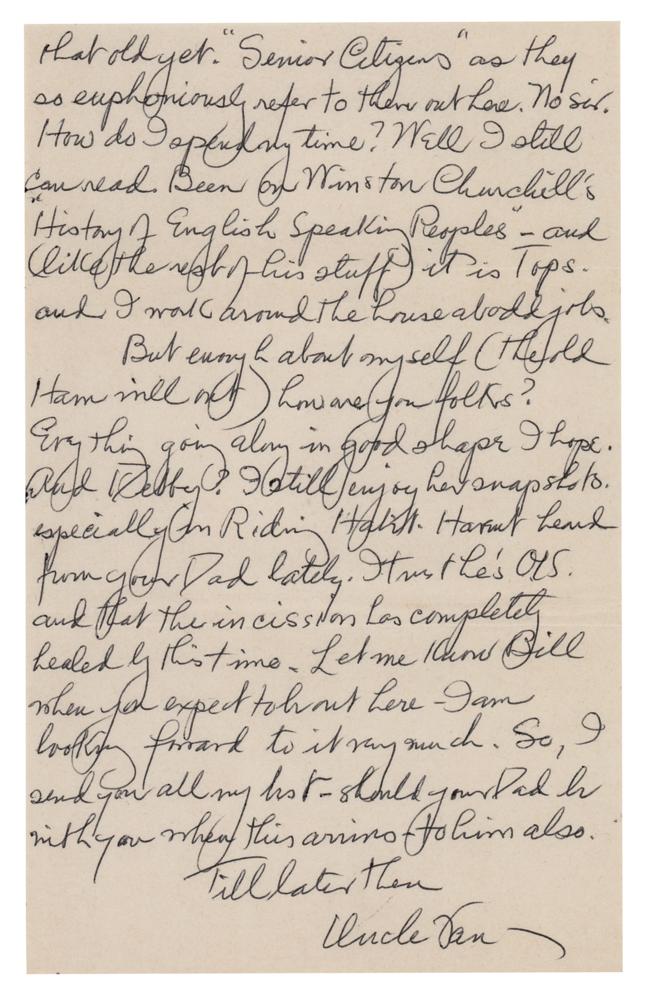 that old yet. "Senior Citizens" as they
so euphoniously refer to them out here. No sir.
How do I spend my time? Well I still
can read. Been on Winston Churchill's
"History of English Speaking Peoples" - and
(like the rest of his stuff) it is Tops.
and I work around the house at odd jobs.
But enough about myself (the old
Ham will out) how are you folks?
Evrything going along in good shape I hope.
And Debby? I still enjoy her snapshots.
especially in Riding Habit. Havent heard
from your Dad lately. Trust he's O.K.
and that the incission has completely
healed by this time. Let me know Bill
when you expect to be out here - I am
looking forward to it very much. So, I
send you all my best - should your Dad be
with you when this arrives - to him also.
Till later then
Uncle Van